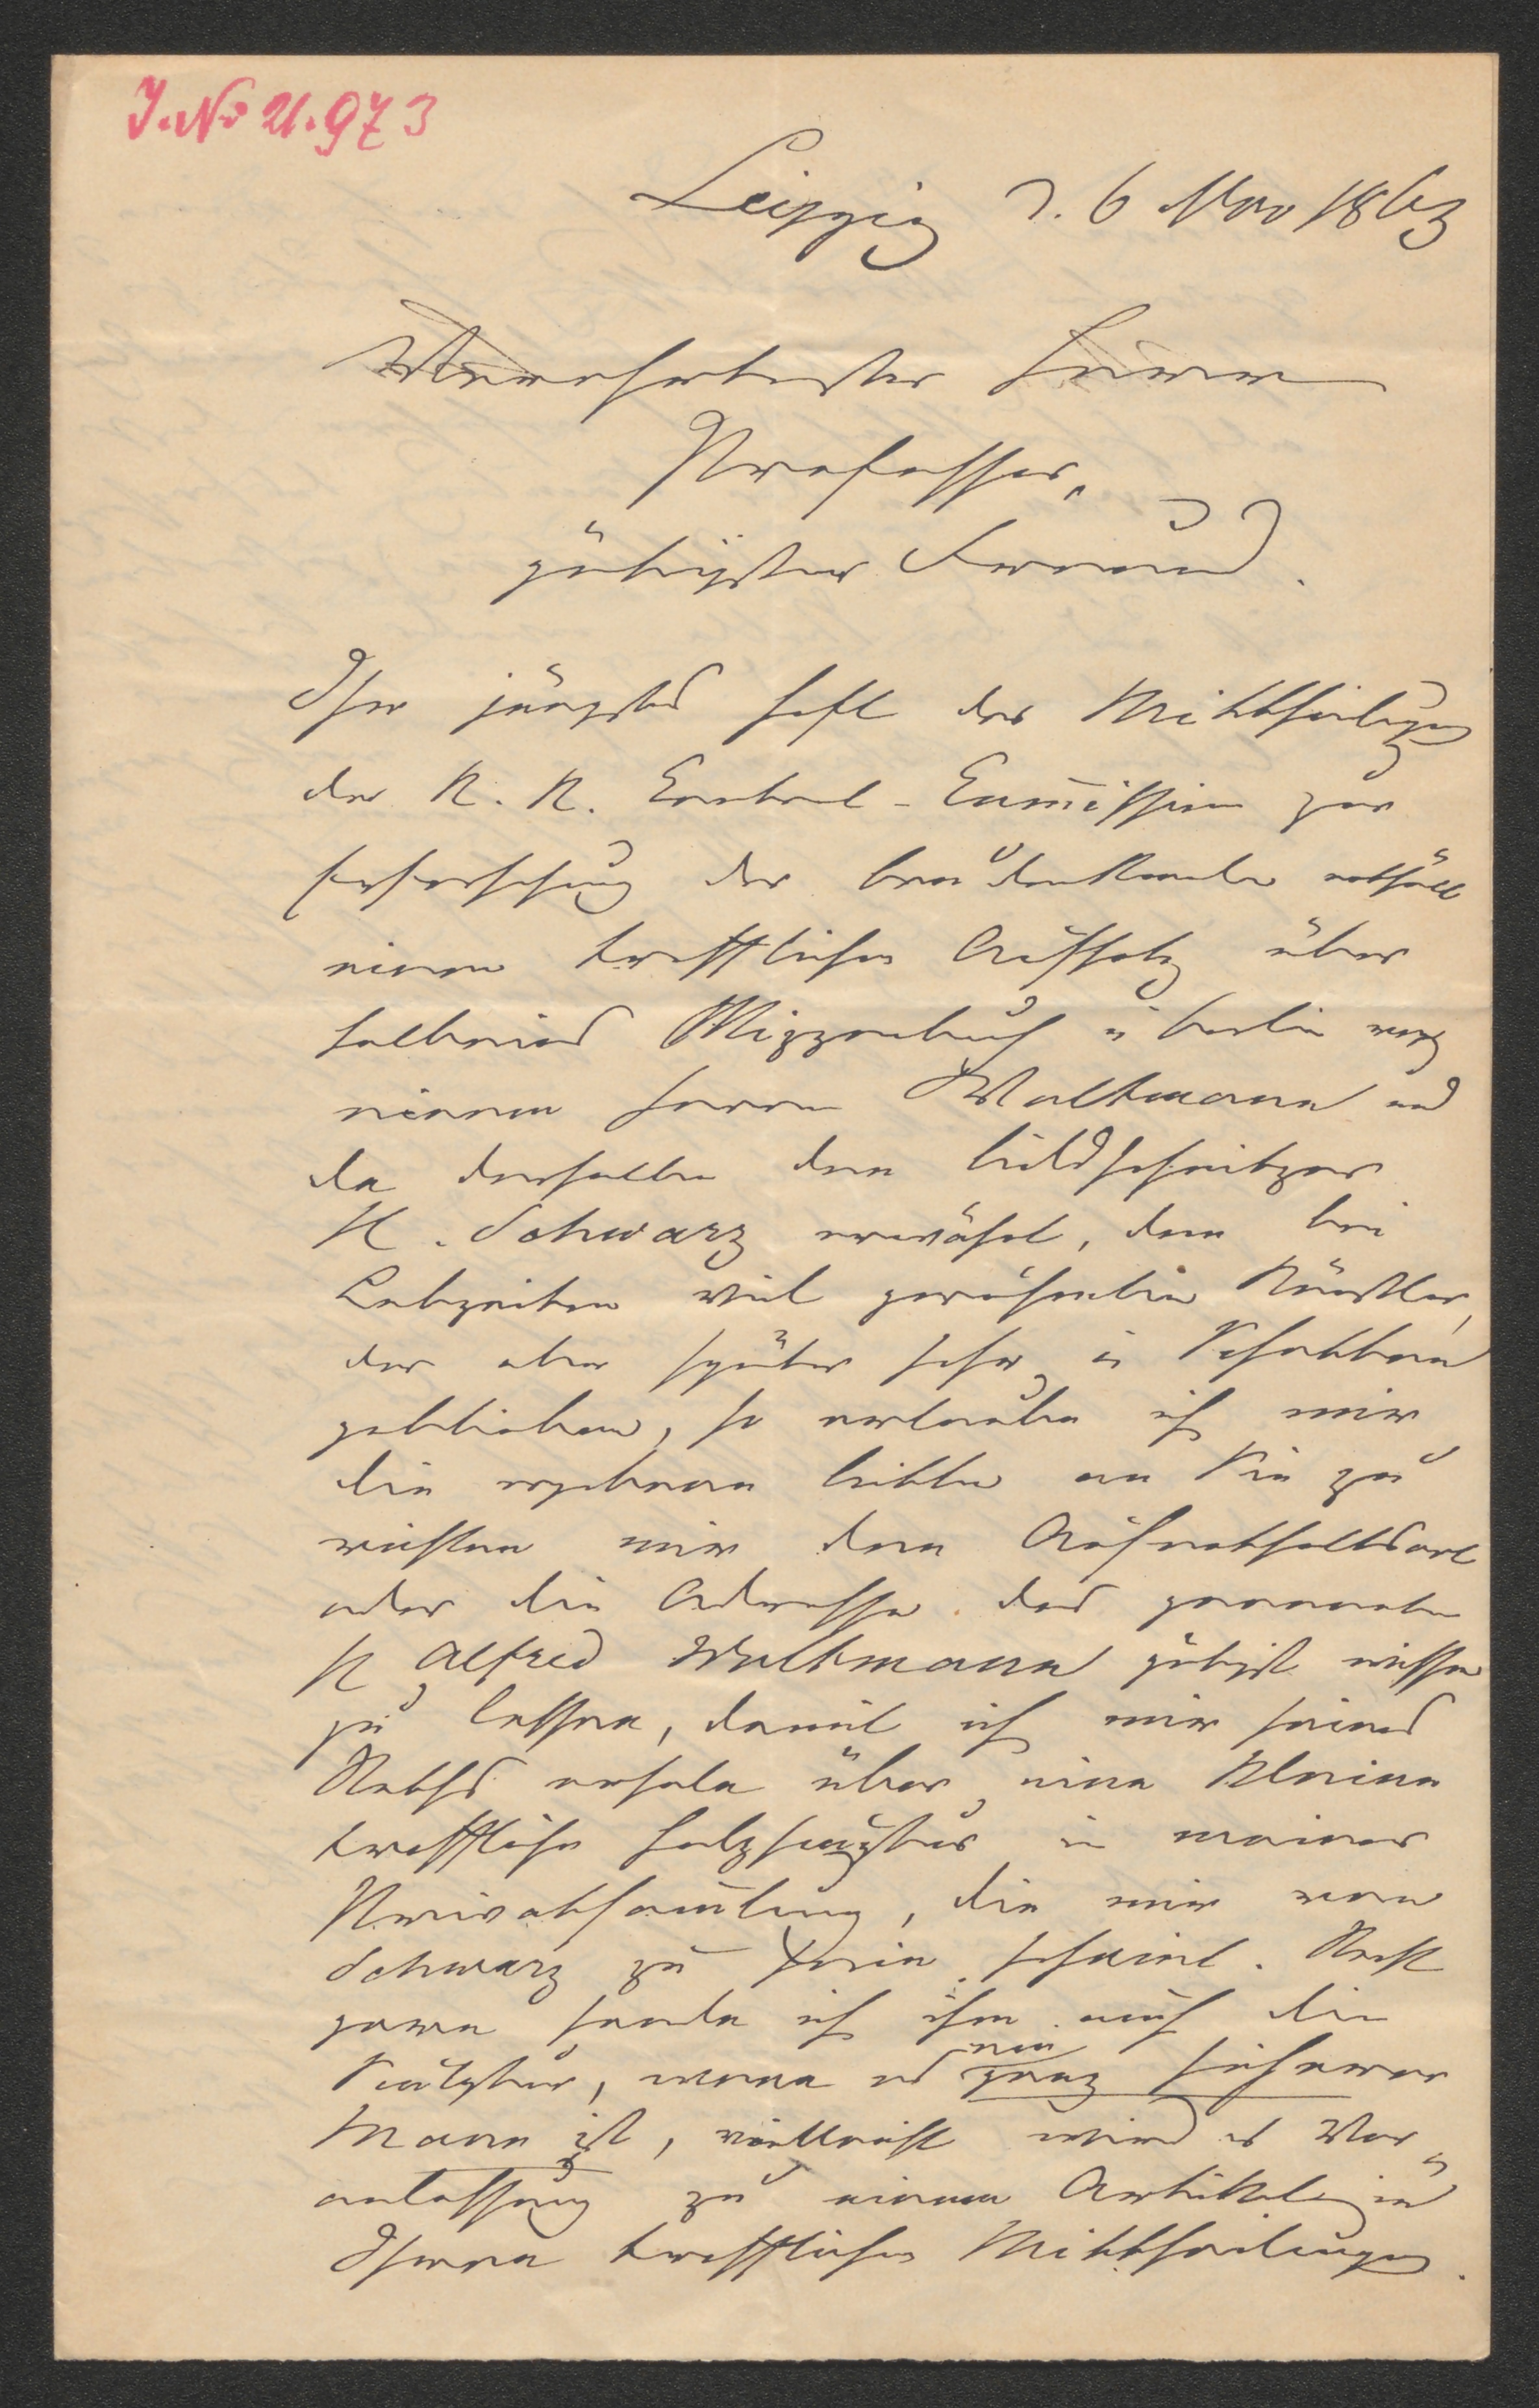 J.No 21.973
Leipzig d. 6 Nov 1863
Verehrtester Herr
Professor,
gütigster Freund.
Ihr jüngstes Heft der Mittheilungen
der K. K. Central-Com̅ission zur
Erforschung der Baudenkmale enthält
einen trefflichen Aufsatz über
Holbeins Skizzenbuch in Berlin von
einem Herrn Woltmann und
da derselbe den Bildschnitzer
H. Schwarz erwähnt, den bei
Lebzeiten viel gerühmten Künstler,
der aber später sehr in Schatten
geblieben, so erlaube ich mir
die ergebene Bitte an Sie zu
richten mir den Aufenthaltsort
oder die Adresse des genannten
H Alfred Woltmann gütigst wissen
zu lassen, damit ich mir seines
Raths erhole über eine kleine
treffliche Holzskulptur in meiner
Privatsam̅lung, die mir von
Schwarz zu sein scheint. Recht
gern sende ich ihm auch die
Skulptur, wenn es ein
ganz sicherer
Mann ist, vielleicht wird es Ver¬
anlassung zu einem Artikel in
Ihren trefflichen Mittheilungen.